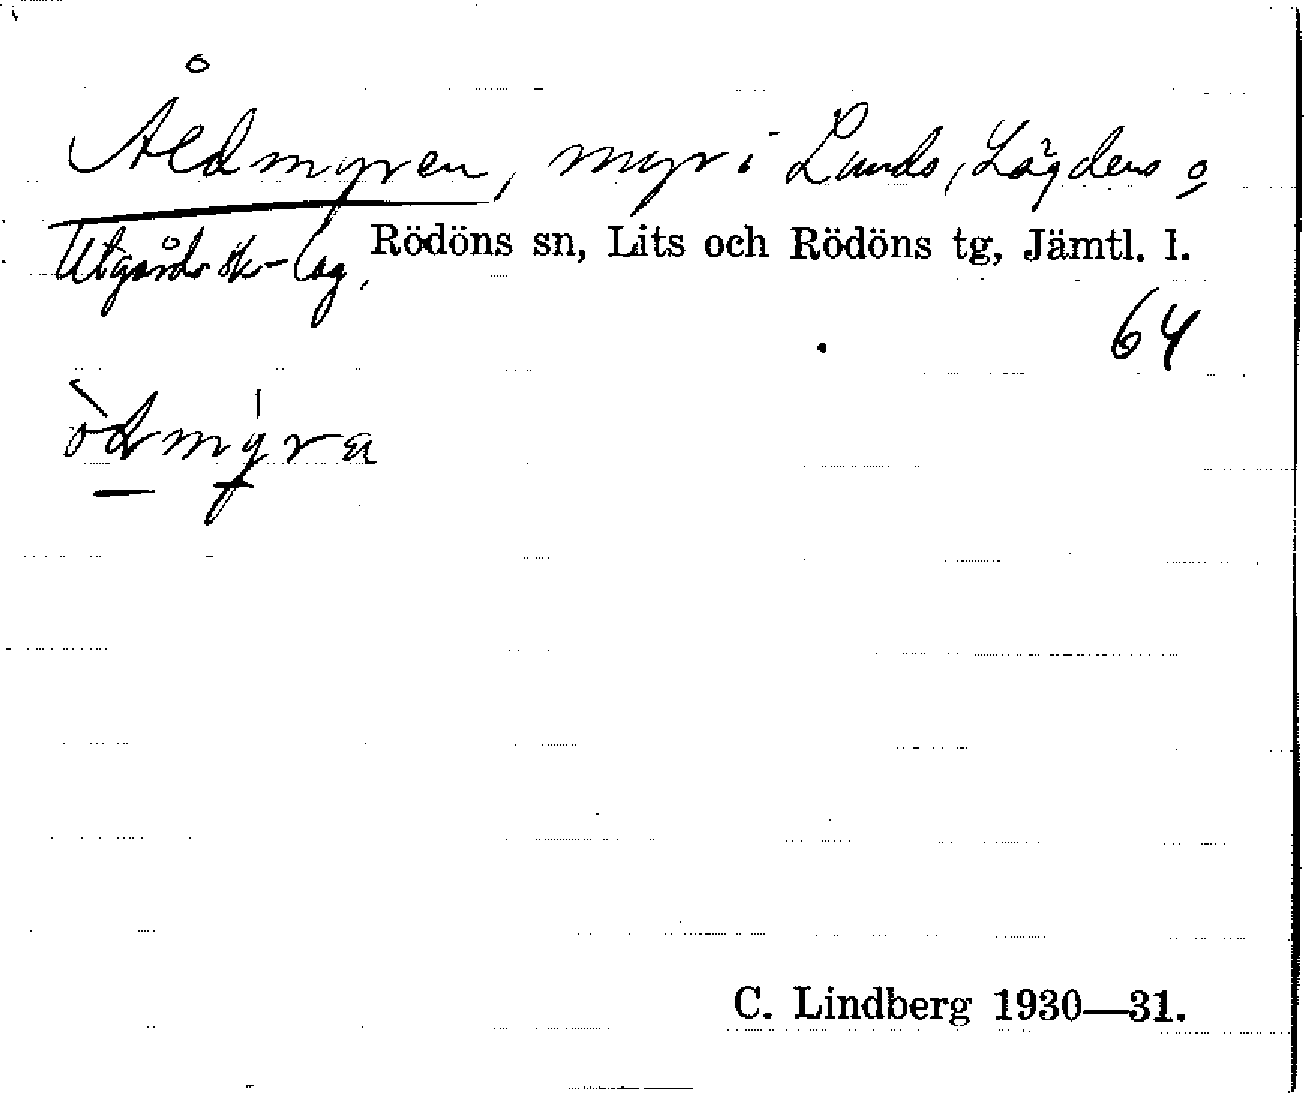 Åldmyren, myr i Lunds, Lägdens o
Utgårds sk-lag, Rödöns sn, Lits och Rödöns tg, Jämtl. l.
64
òdmýra
C. Lindberg 1930—31.